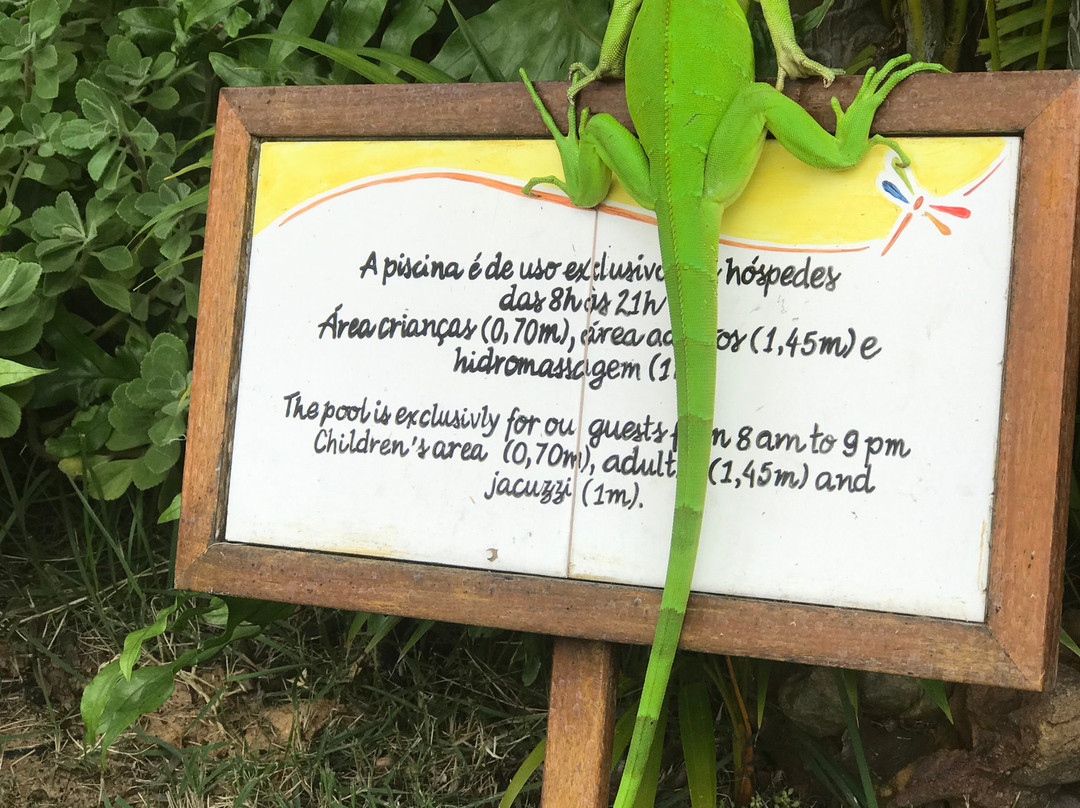 A piscina é de uso exclusivo hóspedes
das 8h às 21h
Área crianças (0,70m), área (1,45m) e
hidromassagem
The pool is exclusivly for ou guests 8 am to 9 pm
Children's area (0,70m), (1,45m) and
jacuzzi (1m).